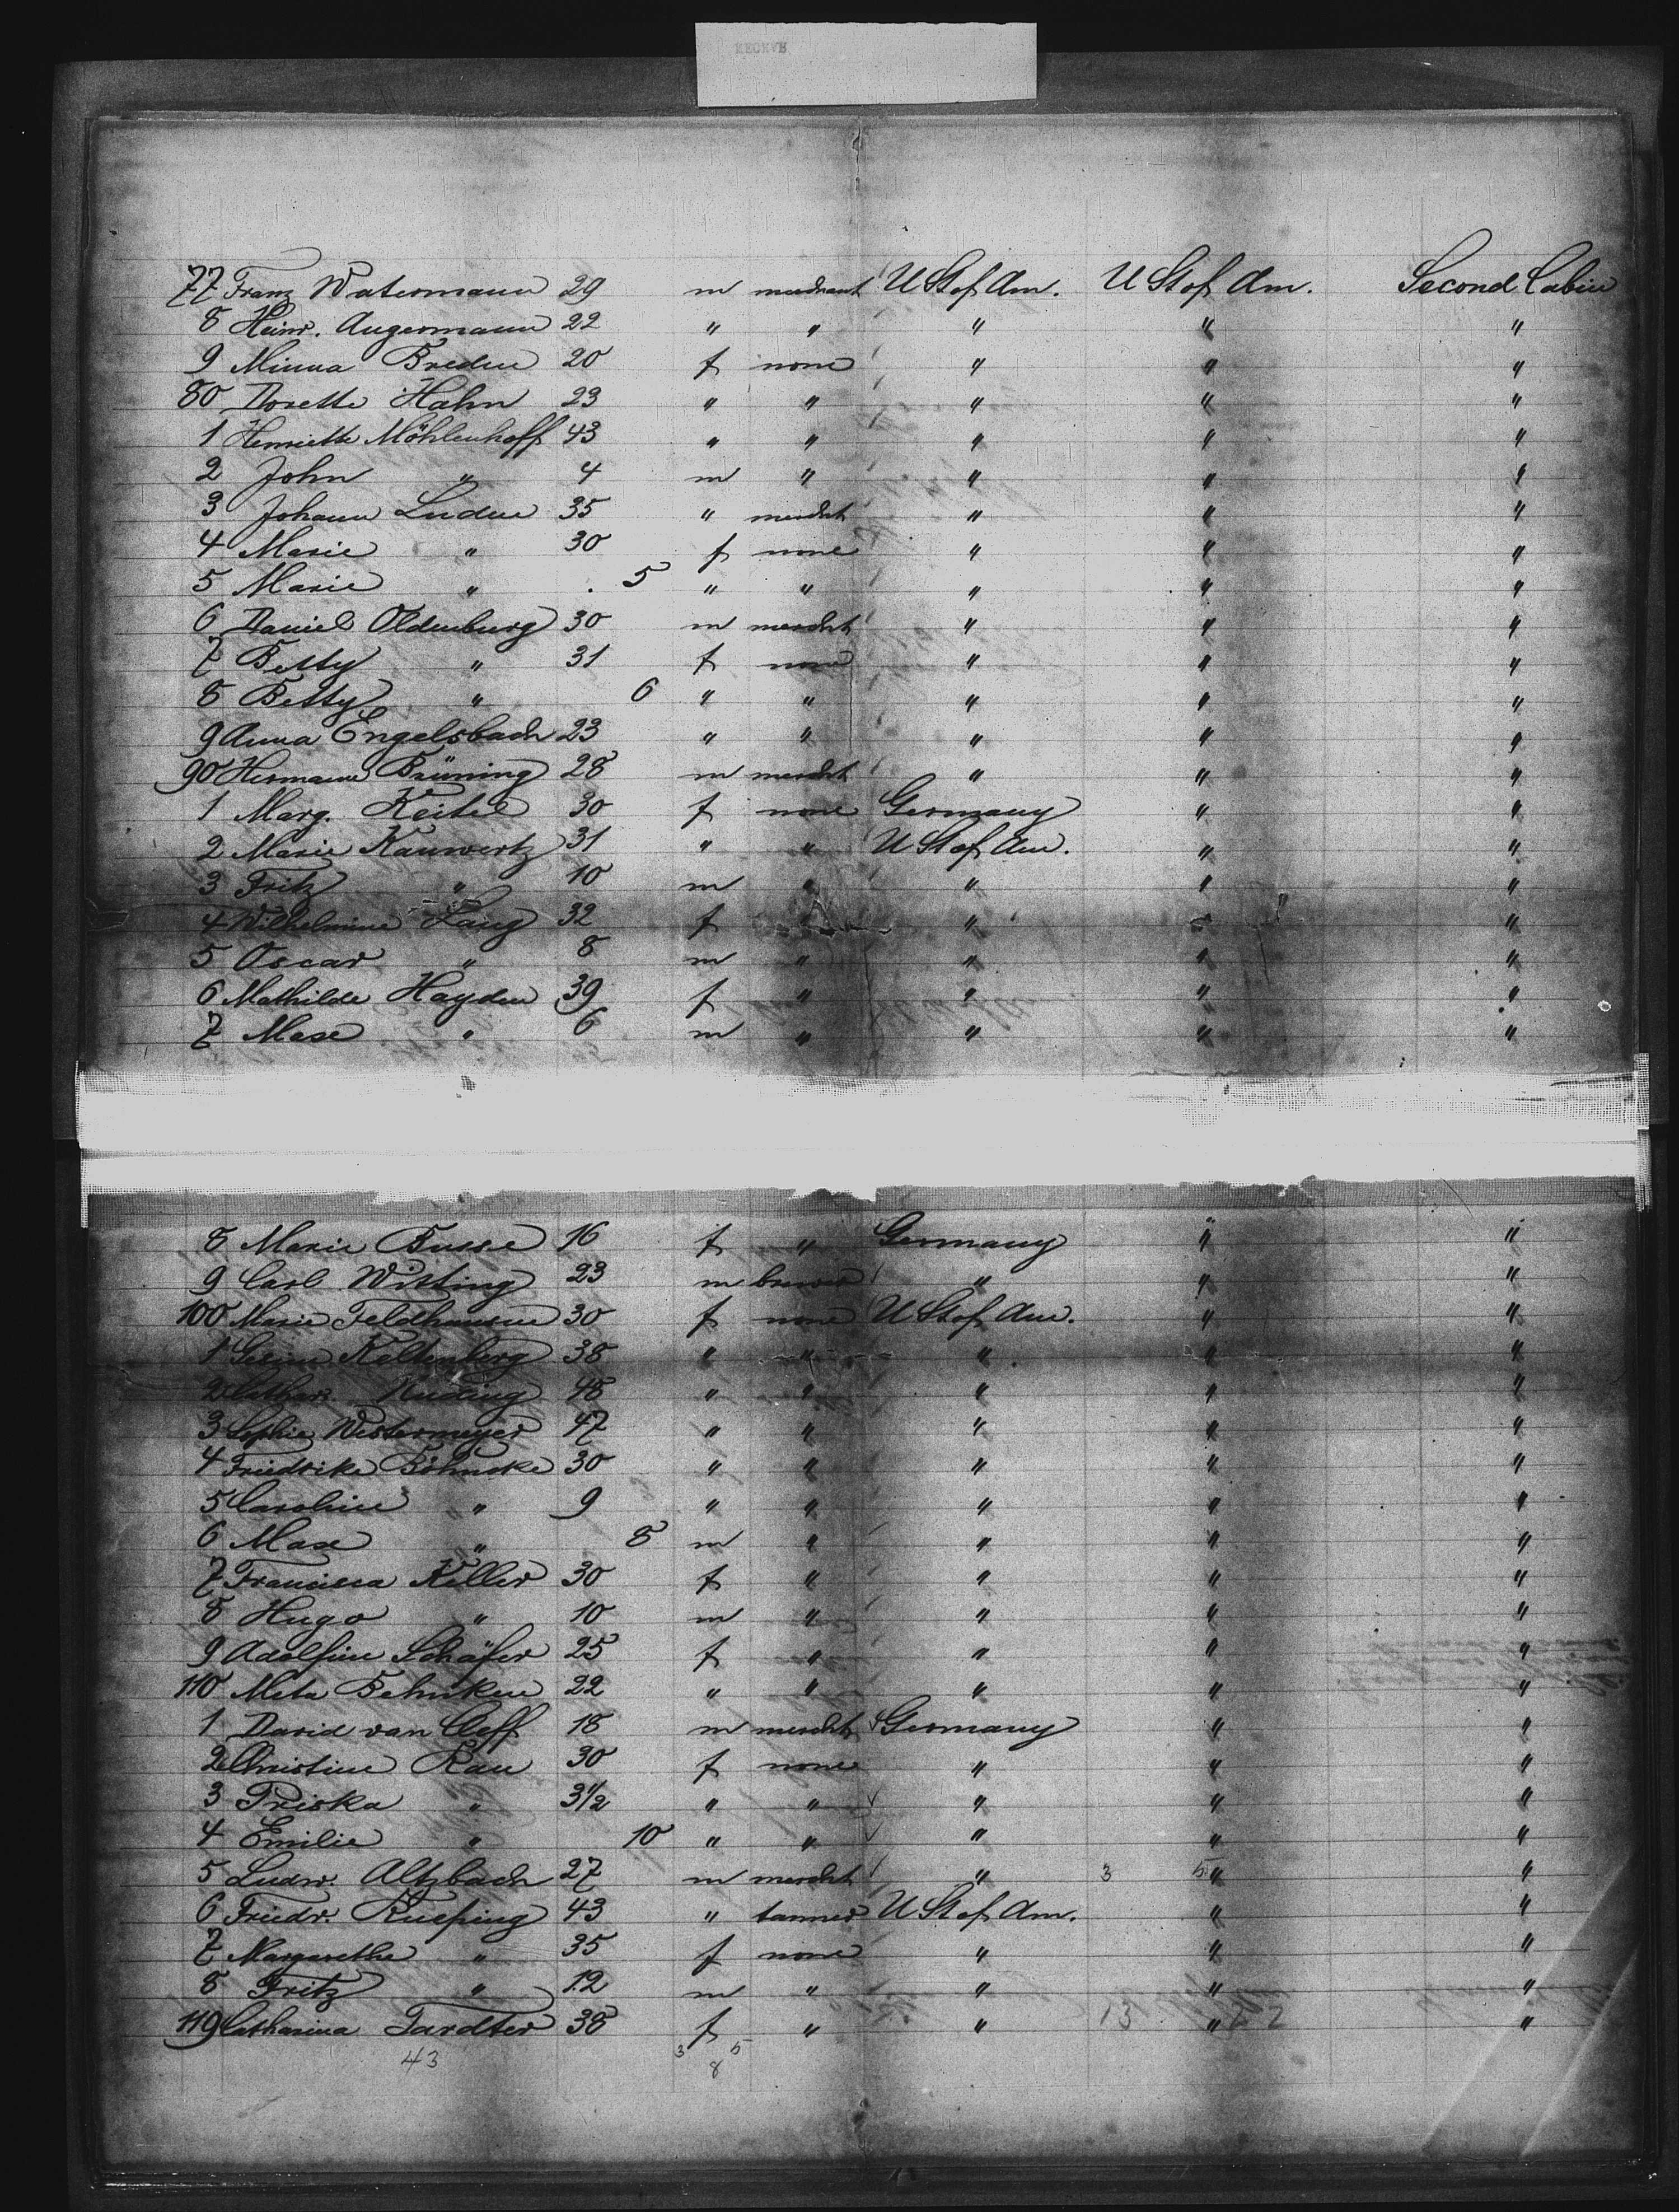 77 Franz Watermann 29 m merchant U St of Am. U St of Am. Second Cabin
8 Heinr. Angermann 22 " " " " "
9 Minna Breden 20 f none " " "
80 Dorette Hahn 23 " " " " "
1 Henriette Möhlenhoff 43 " " " " "
2 John " 4 m " " " "
3 Johann Luden 35 " mercht " " "
4 Marie " 30 f none " " "
5 Marie " 5 " " " " "
6 Daniel Oldenburg 30 m mercht " " "
7 Betty " 31 f none " " "
8 Betty " 6 " " " " "
9 Anna Engelsbach 23 " " " " "
90 Hermann Brüning 28 m mercht " " "
1 Marg. Keitel 30 f none Germany " "
2 Marie Kauwertz 31 " " U St of Am. " "
3 Fritz " 10 m " " " "
4 Wilhelmine Lang 32 f " " " "
5 Oscar " 8 m " " " "
6 Mathilde Hayden 39 f " " " "
7 Max " 6 m " " " "
8 Marie Busse 16 f " Germany " "
9 Carl Witting 23 m brewer " " "
100 Marie Feldhausen 30 f none U St of Am. " "
1 Gesine Keltenberg 38 " " " " "
2 Cathar. 48 " " " " "
3 Sophie Westermeyer 47 " " " " "
4 Friedrike Böhmcke 30 " " " " "
5 Caroline " 9 " " " " "
6 Max " 8 m " " " "
7 Francisca Keller 30 f " " " "
8 Hugo " 10 m " " " "
9 Adolfine Schäfer 25 f " " " "
110 Meta Behnken 22 " " " " "
1 David van Cleff 18 m mercht Germany " "
2 Christine Rau 30 f none " " "
3 Priska " 3½ " " " " "
4 Emilie " 10 " " " " "
5 Ludw. Altzbach 27 m mercht " 3 5 " "
6 Friedr. Rueping 43 " tanner U St of Am. " "
7 Margarethe " 35 f none " " "
8 Fritz " 12 m " " " "
119 Catharina Tardter 38 f " " 13 " 22 "
43 3 5
8